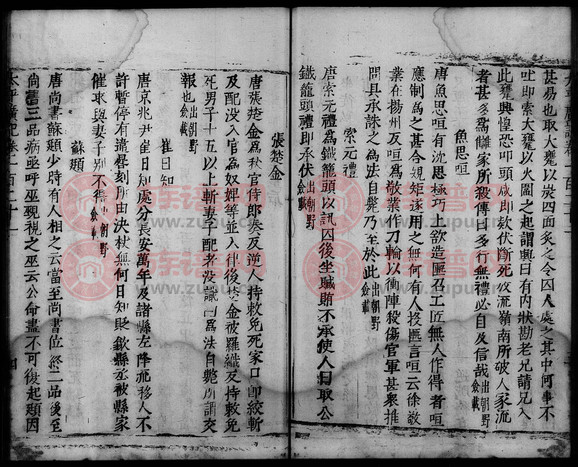 甚易也取大甕以炭四面炙之令囚人處之其中何事不
吐即索大甕以火圍之起謂興曰有內狀勘老兄請兄入
此甕興惶恐叩頭咸即款伏斷死放流嶺南所破人家流
者甚多為讎家所殺傳曰多行無禮必自及信哉出朝野僉載
魚思咺
唐魚思咺有沈思極巧上欲造匭召工匠無人作得者咺
應制為之甚合規矩遂用之無何有人投匭言咺云徐敬
業在揚州反咺為敬業作刀輪以衝陣殺傷官軍甚衆推
問具承誅之為法自斃乃至於此出朝野僉載
索元禮
唐索元禮為鐵籠頭以訊囚後坐贓賄不承使人曰取公
鐵籠頭禮即承伏出朝野僉載
張楚金
唐張楚金為秋官侍郎奏反逆人持敕免死家口即絞斬
及配沒入官為奴婢等並入律後楚金被羅織反持敕免
死男子十五以上斬妻子配者沒識曰為法自斃所謂交
報也出朝野僉載
崔日知
唐京兆尹崔日知處分長安萬年及諸縣左降流移人不
許暫停有違晷刻所由決杖無何日知貶歙縣丞被縣家
催取與妻子別不得出朝野僉載
蘇頲
唐尚書蘇頲少時有人相之云當至尚書位終二品後至
尚書三品病亟呼巫覡視之巫云公命盡不可復起頲因
太平廣記卷一百二十一